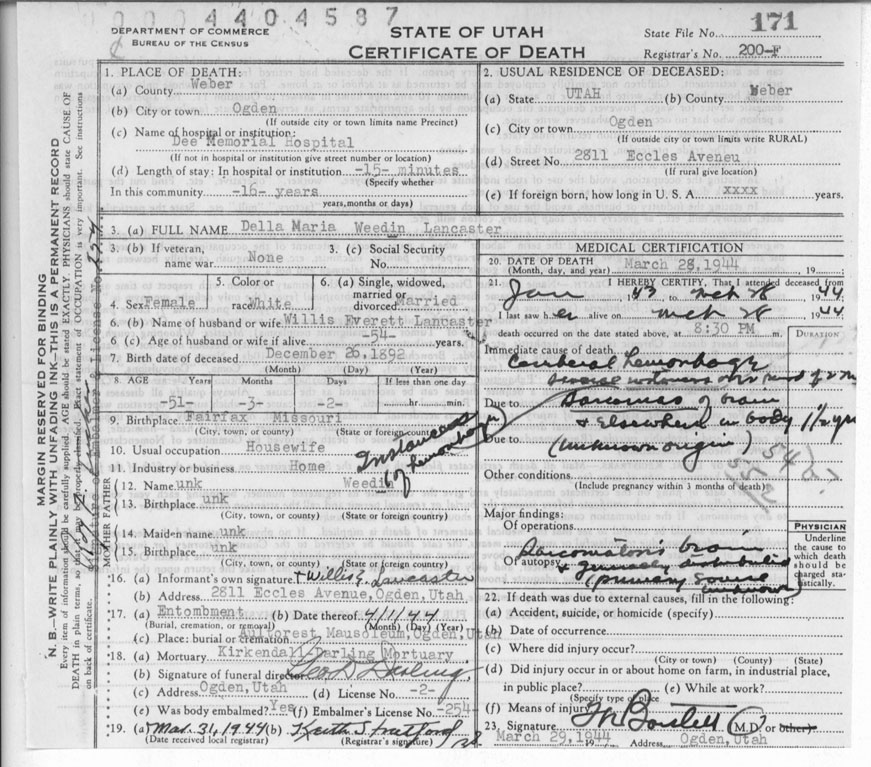 0004404587
DEPARTMENT OF COMMERCE
BUREAU OF THE CENSUS
STATE OF UTAH
CERTIFICATE OF DEATH
State File No. 171
Registrar's No. 200-F
1. PLACE OF DEATH:
(a) County Weber
(b) City or town Ogden
(If outside city or town limits name Precinct)
(c) Name of hospital or institution:
Dee Memorial Hospital
(If not in hospital or institution give street number or location)
(d) Length of stay: In hospital or institution -15- minutes
(Specify whether
In this community -16- years
years, months or days)
2. USUAL RESIDENCE OF DECEASED:
(a) State UTAH (b) County Weber
(c) City or town Ogden
(If outside city or town limits write RURAL)
(d) Street No 2811 Eccles Aveneu
(If rural give location)
(e) If foreign born, how long in U. S. A. xxxx years.
3. (a) FULL NAME Della Maria Weedin Lancaster
3. (b) If veteran,
name war None
3. (c) Social Security
No.
4. Sex Female
5. Color or
race White
6. (a) Single, widowed,
married or
divorced Married
6. (b) Name of husband or wife Willis Everett Lancaster
6 (c) Age of husband or wife if alive -54- years.
7. Birth date of deceased December 26, 1892
(Month) (Day) (Year)
8. AGE Years Months Days If less than one day
-51- -3- -2- hr. min.
9. Birthplace Fairfax Missouri
(City, town, or county) (State or foreign country)
10. Usual occupation Housewife
11. Industry or business Home
Instances
(of hemorrhage)
FATHER
12. Name unk Weedin
13. Birthplace unk
(City, town, or county) (State or foreign country)
MOTHER
14. Maiden name unk
15. Birthplace unk
(City, town, or county) (State or foreign country)
16. (a) Informant's own signature Willis E. Lancaster
(b) Address 2811 Eccles Avenue, Ogden, Utah
17. (a) Entombment (b) Date thereof 4/1/44
(Burial, cremation, or removal) (Month) (Day) (Year)
(c) Place: burial or cremation Aultorest Mausoleum, Ogden, Utah
18. (a) Mortuary Kirkendall-Darling Mortuary
(b) Signature of funeral director Geo D Darling
(c) Address Ogden, Utah (d) License No. -2-
(e) Was body embalmed? Yes (f) Embalmer's License No. -254-
19. (a) Mar. 31, 1944 (b) Keith S.
(Date received local registrar) (Registrar's signature)
MEDICAL CERTIFICATION
20. DATE OF DEATH March 28, 1944 19
(Month, day, and year)
21. I HEREBY CERTIFY, That I attended deceased from
Jan 1943 to Mch 28 1944
I last saw her alive on Mch 28 1944
death occurred on the date stated above, at 8:30 PM m.
DURATION
Immediate cause of death
Cerebral hemorrhage
Due to Sarcomas of brain
& Elsewhere in body 1½ yr
Due to (Unknown origin)
54
55e
?
Other conditions
(Include pregnancy within 3 months of death)
Major findings:
Of operations
Of autopsy Sarcomatosis brain
& generally distributed
(primary source
unknown)
PHYSICIAN
Underline
the cause to
which death
should be
charged sta-
tistically.
22. If death was due to external causes, fill in the following:
(a) Accident, suicide, or homicide (specify)
(b) Date of occurrence
(c) Where did injury occur?
(City or town) (County) (State)
(d) Did injury occur in or about home on farm, in industrial place,
in public place? (e) While at work?
(Specify type of place
(f) Means of injury
23. Signature (M.D. or other)
March 29, 1944 19 Address Ogden, Utah
MARGIN RESERVED FOR BINDING
N. B.—WRITE PLAINLY WITH UNFADING INK—THIS IS A PERMANENT RECORD
Every item of information should be carefully supplied. AGE should be stated EXACTLY. PHYSICIANS should state CAUSE OF
DEATH in plain terms, so that it may be properly classified. Exact statement of OCCUPATION is very important. See instructions
on back of certificate.